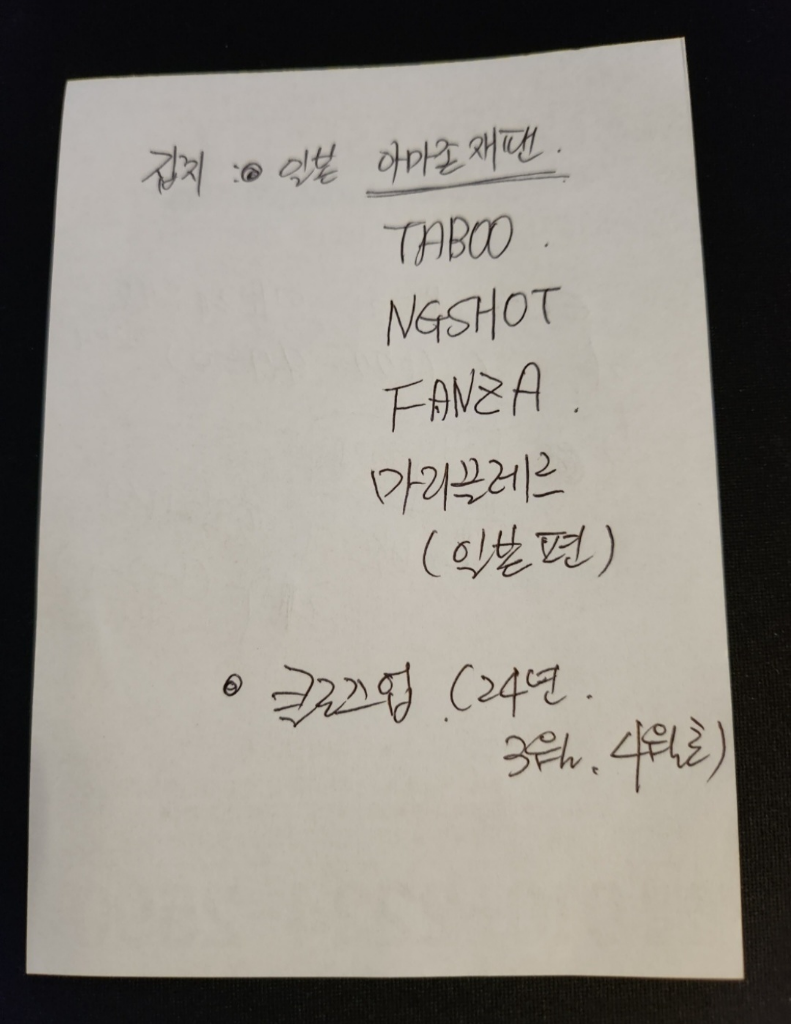 잡지 : ⊙ 일본 아마존재팬.
TABOO.
NGSHOT
FANZA.
마리끌레르
(일본편)
⊙ 클로즈업 (24년.
3월. 4월호)